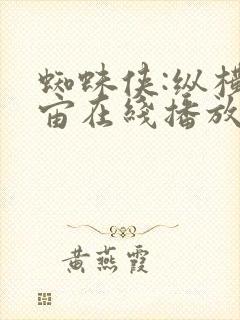 蜘蛛侠:纵横
宙在线播放
黄燕霞